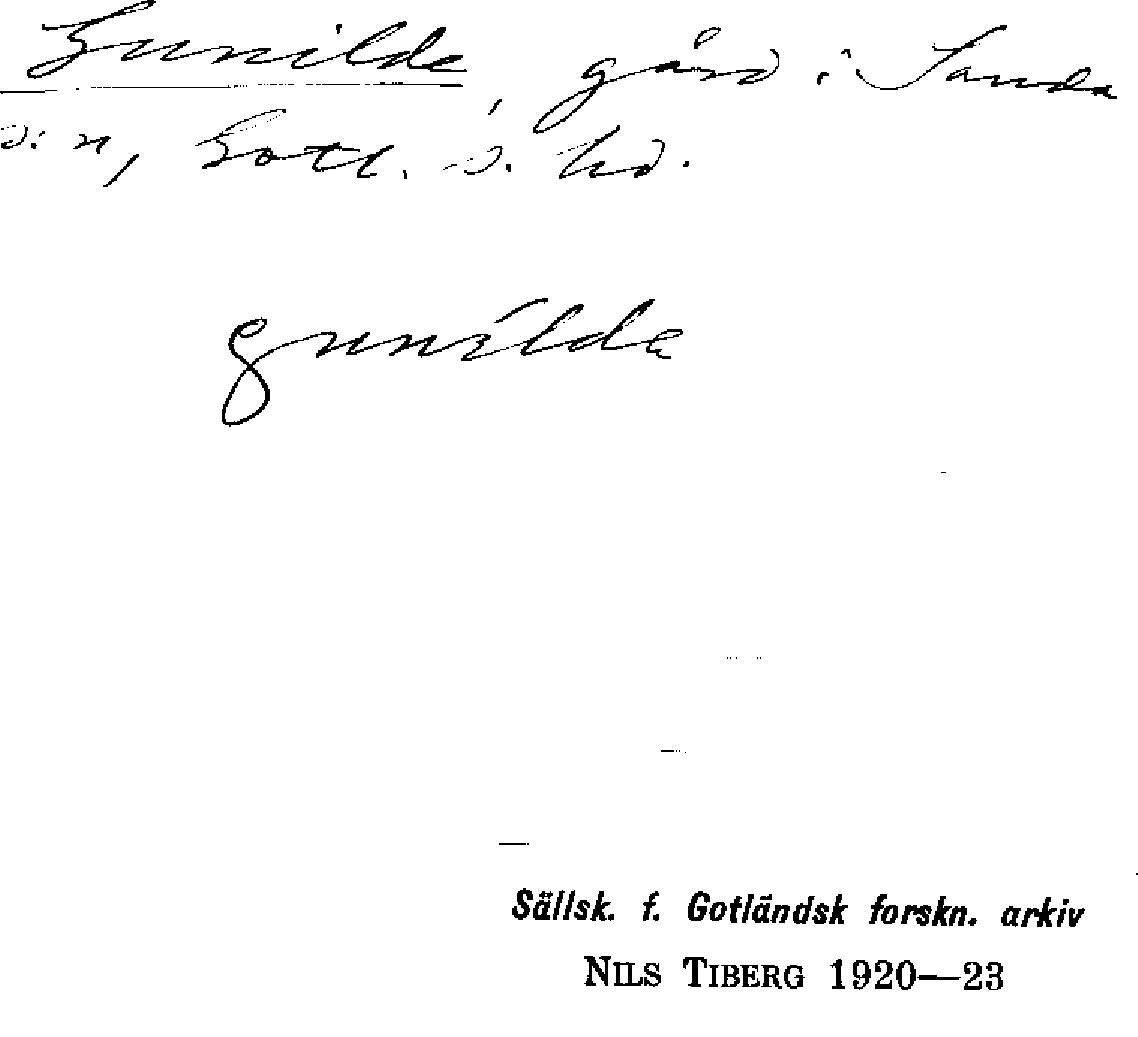 Gunilda, gård i Sanda
s:n, Gotl. s. hd.
gunilda
Sällsk. f. Gotländsk forskn. arkiv
NILS TIBERG 1920—23